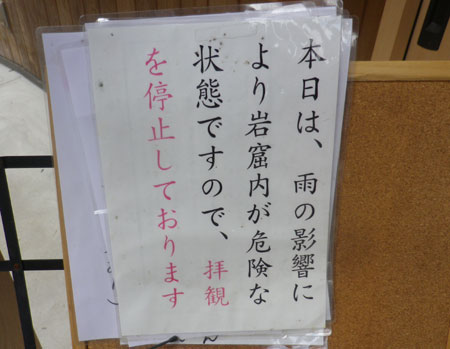 本日は、雨の影響に
より岩窟内が危険な
状態ですので、拝観
を停止しております